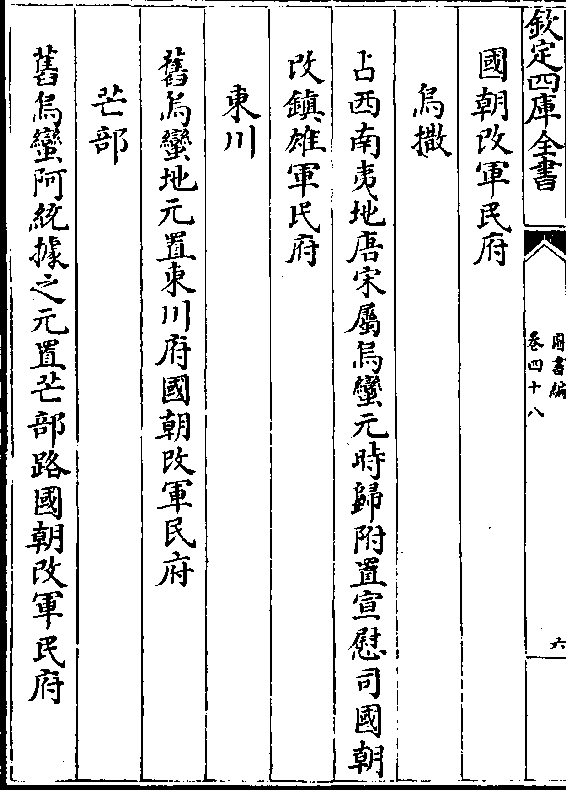 欽定四庫全書
圖書編
卷四十八
六
國朝改軍民府
烏撒
占西南夷地唐宋屬烏蠻元時歸附置宣慰司國朝
改鎮雄軍民府
東川
舊烏蠻地元置東川府國朝改軍民府
芒部
舊烏蠻阿統據之元置芒部路國朝改軍民府